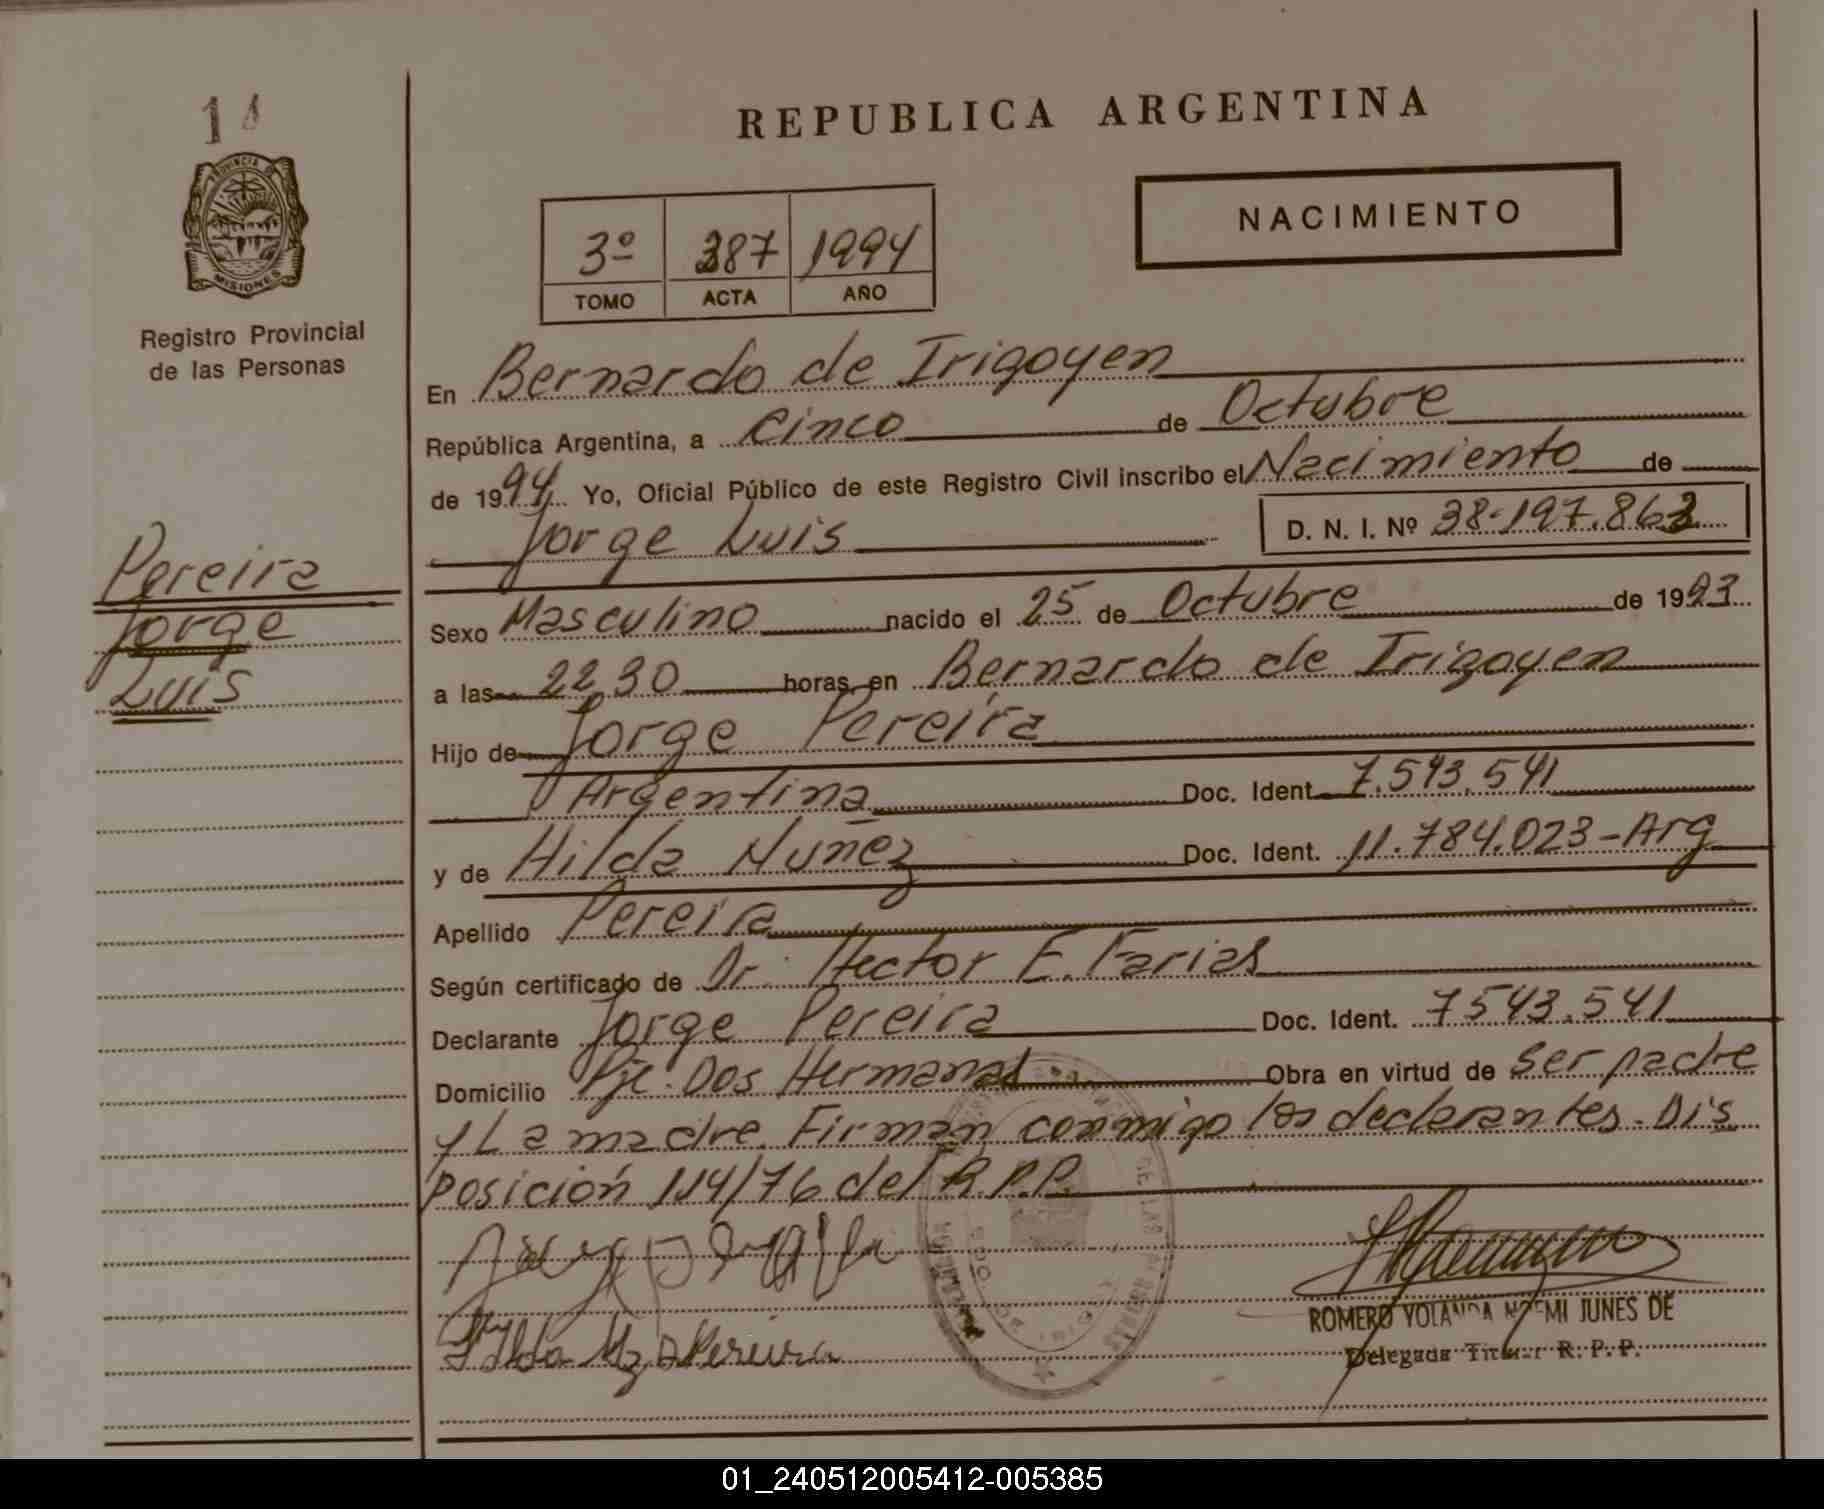 1
PROVINCIA DE
MISIONES
Registro Provincial
de las Personas
Pereira
Jorge
Luis
REPUBLICA ARGENTINA
NACIMIENTO
3º 387 1994
TOMO ACTA AÑO
En Bernardo de Irigoyen
República Argentina, a cinco de Octubre
de 1994 Yo, Oficial Público de este Registro Civil inscribo el Nacimiento de
Jorge Luis D. N. I. Nº 38.197.863
Sexo Masculino nacido el 25 de Octubre de 1993
a las 22 30 horas en Bernardo de Irigoyen
Hijo de Jorge Pereira
Argentina Doc. Ident. 7.543.541
y de Hilda Nuñez Doc. Ident. 11.784.023-Arg
Apellido Pereira
Según certificado de Dr. Hector E. Farias
Declarante Jorge Pereira Doc. Ident. 7543.541
Domicilio Pje. Dos Hermanas Obra en virtud de ser padre
y La madre. Firman conmigo los declarantes. Dis
posición 114/76 del R.P.P.
ROMERO YOLANDA NOEMI JUNES DE
Delegada Titular R. P. P.
01_240512005412-005385